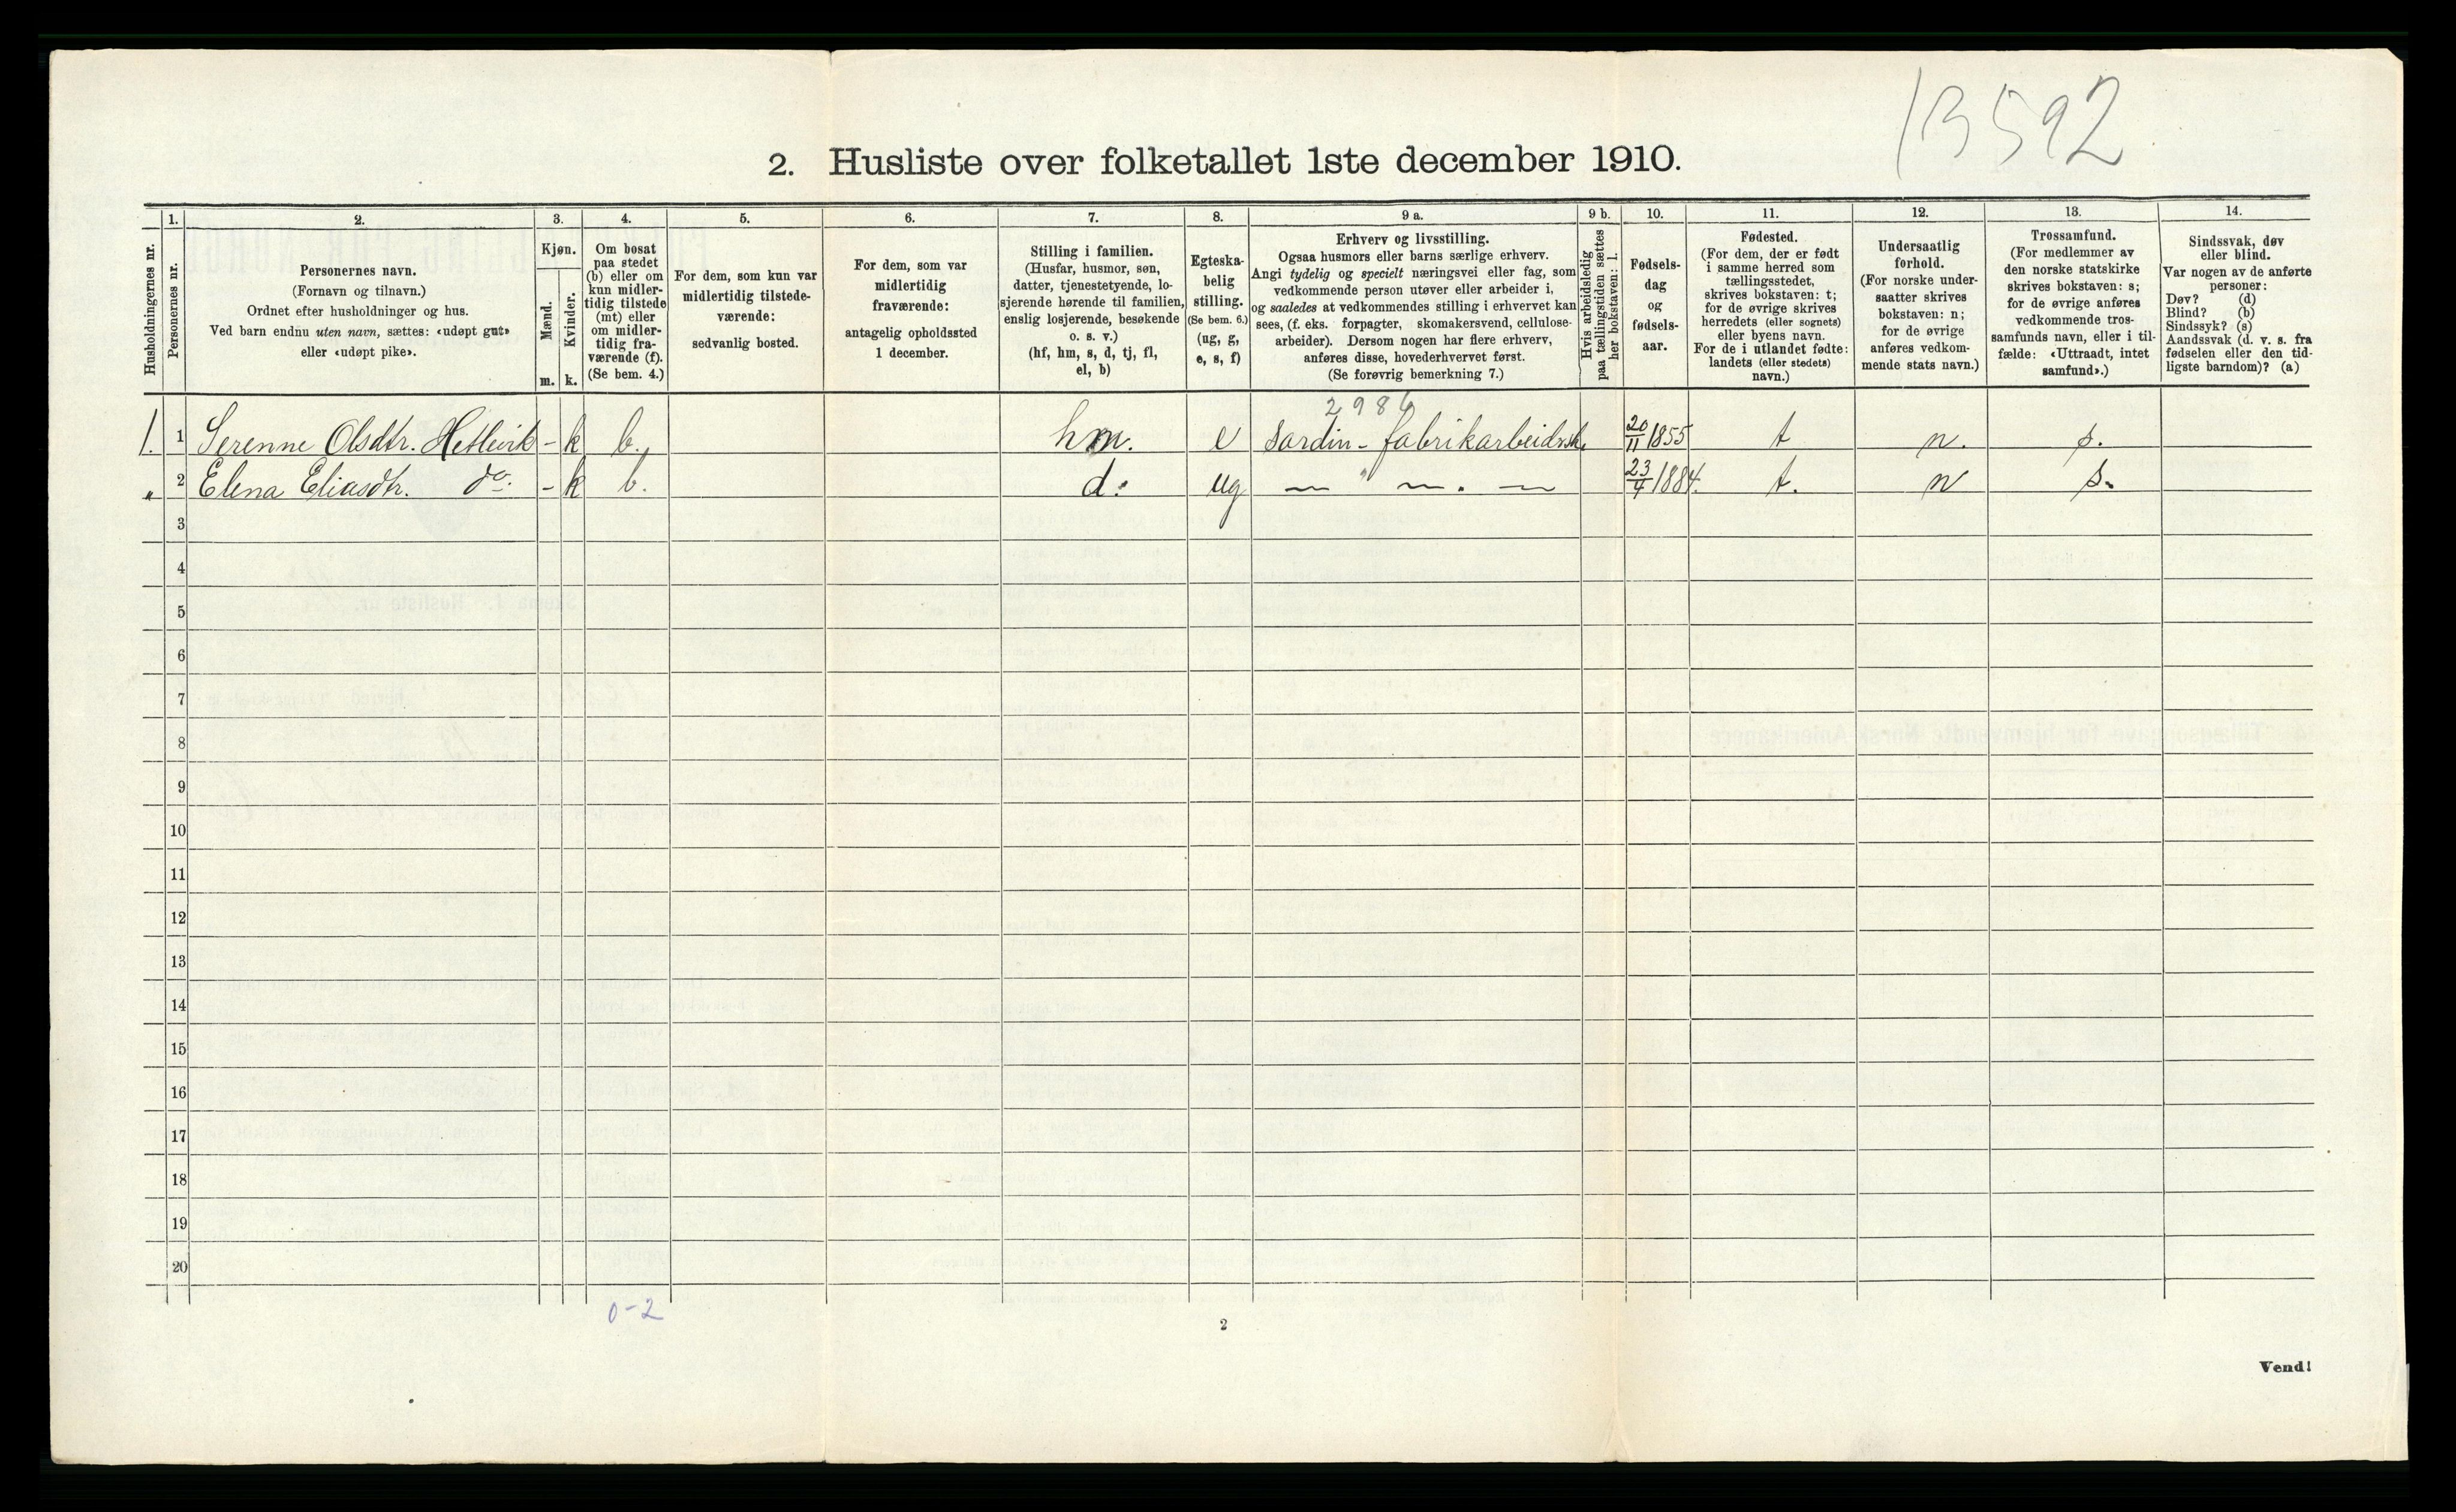 13592
2. Husliste over folketallet 1ste december 1910.
Husholdningernes nr.
1.
Personernes nr.
2.
Personernes navn.
(Fornavn og tilnavn.)
Ordnet efter husholdninger og hus.
Ved barn endnu uten navn, sættes: «udøpt gut»
eller «udøpt pike».
3.
Kjøn.
Mænd.
Kvinder.
m. k.
4.
Om bosat
paa stedet
(b) eller om
kun midler-
tidig tilstede
(mt) eller
om midler-
tidig fra-
værende (f).
(Se bem. 4.)
5.
For dem, som kun var
midlertidig tilstede-
værende:
sedvanlig bosted.
6.
For dem, som var
midlertidig
fraværende:
antagelig opholdssted
1 december.
7.
Stilling i familien.
(Husfar, husmor, søn,
datter, tjenestetyende, lo-
sjerende hørende til familien,
enslig losjerende, besøkende
o. s. v.)
(hf, hm, s, d, tj, fl,
el, b)
8.
Egteska-
belig
stilling.
(Se bem. 6.)
(ug, g,
e, s, f)
9 a.
Erhverv og livsstilling.
Ogsaa husmors eller barns særlige erhverv.
Angi tydelig og specielt næringsvei eller fag, som
vedkommende person utøver eller arbeider i,
og saaledes at vedkommendes stilling i erhvervet kan
sees, (f. eks. forpagter, skomakersvend, cellulose-
arbeider). Dersom nogen har flere erhverv,
anføres disse, hovederhvervet først.
(Se forøvrig bemerkning 7.)
9 b.
Hvis arbeidsledig
paa tællingstiden sættes
her bokstaven: l.
10.
Fødsels-
dag
og
fødsels-
aar.
11.
Fødested.
(For dem, der er født
i samme herred som
tællingsstedet,
skrives bokstaven: t;
for de øvrige skrives
herredets (eller sognets)
eller byens navn.
For de i utlandet fødte:
landets (eller stedets)
navn.)
12.
Undersaatlig
forhold.
(For norske under-
saatter skrives
bokstaven: n;
for de øvrige
anføres vedkom-
mende stats navn.)
13.
Trossamfund.
(For medlemmer av
den norske statskirke
skrives bokstaven: s;
for de øvrige anføres
vedkommende tros-
samfunds navn, eller i til-
fælde: «Uttraadt, intet
samfund».)
14.
Sindssvak, døv
eller blind.
Var nogen av de anførte
personer:
Døv? (d)
Blind? (b)
Sindssyk? (s)
Aandssvak (d. v. s. fra
fødselen eller den tid-
ligste barndom)? (a)
2986
1. 1 Serenne Olsdtr. Hetlevik - k b. hm. e Sardin-fabrikarbeiderske 20/11 1855 t n. s.
" 2 Elena Eliasdtr. do. - k b. d: ug — " — . — 23/4 1884. t. n s.
3
4
5
6
7
8
9
10
11
12
13
14
15
16
17
18
19
20
0-2
2
Vend!